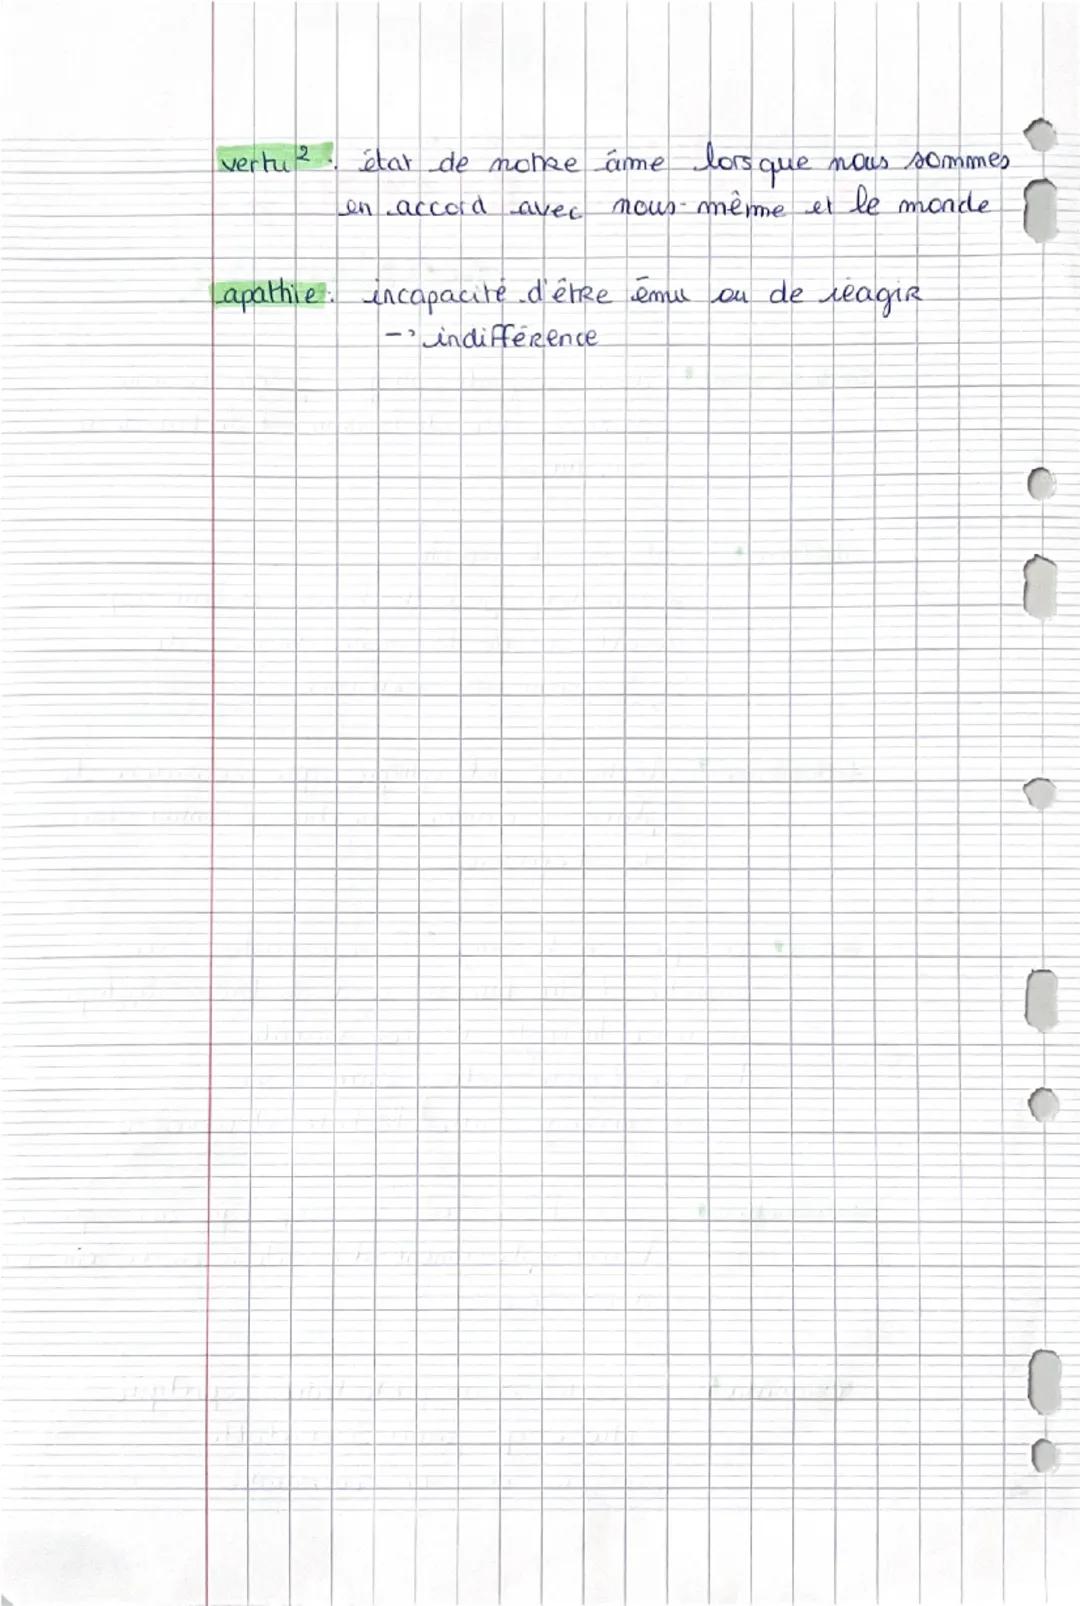 vertu² : état de notre âme lorsque nous sommes
en accord avec nous-même et le monde
apathie : incapacité d'être ému ou de réagir
-> indifférence